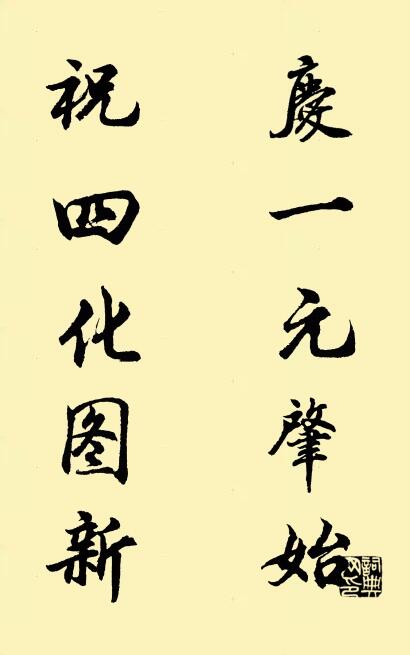 慶一元肇始
祝四化图新